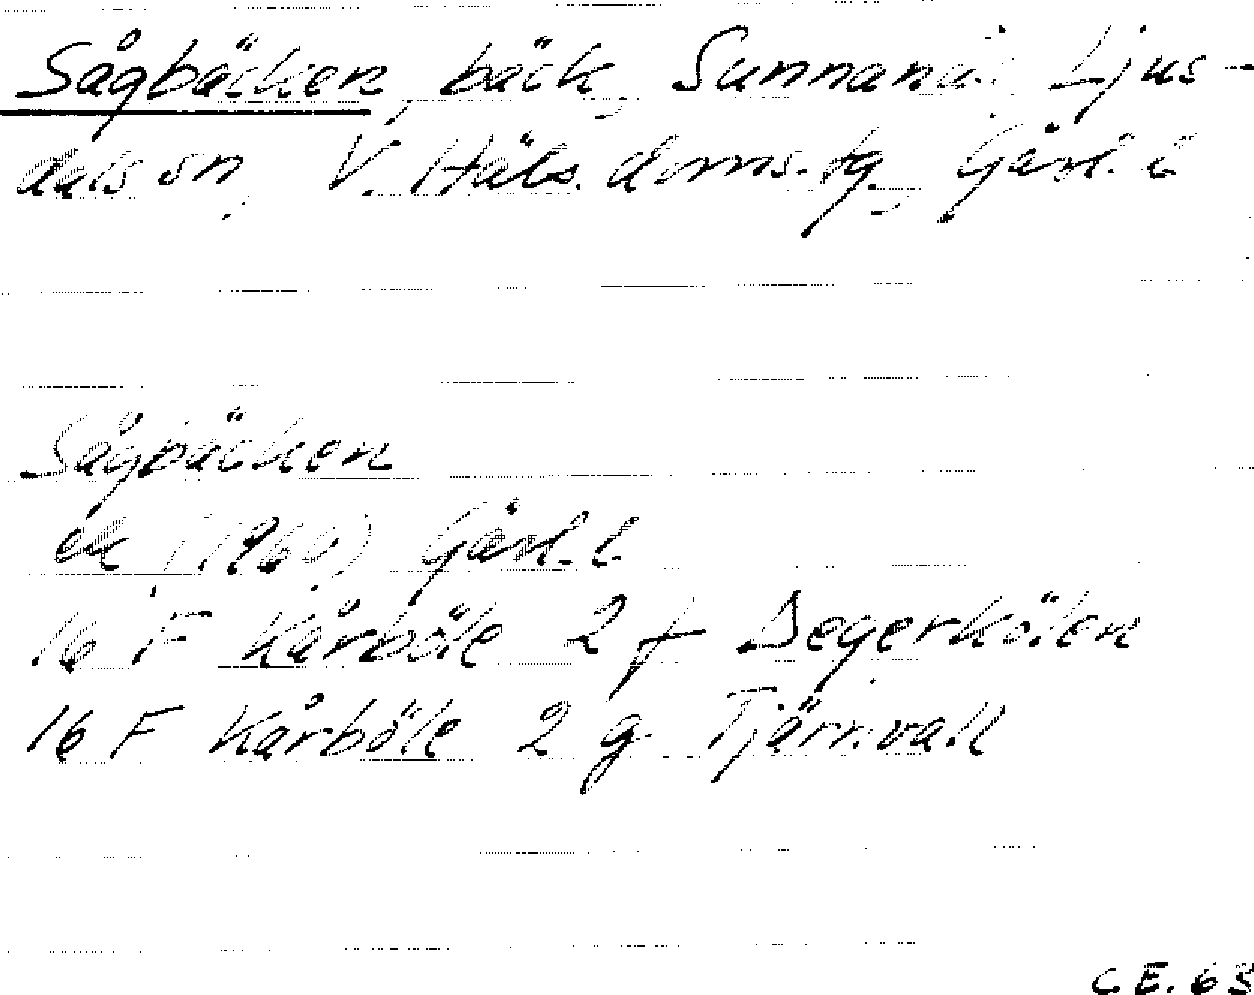 Sågbäcken, bäck, Sunnanå, Ljus-
dals sn, V. Häls. doms. tg., Gävl. l
Sågbäcken
ek (1960) Gävl. l.
16 F Kårböle 2 f Degerkölen
16 F Kårböle 2 g Tjärnvall
C.E. 63